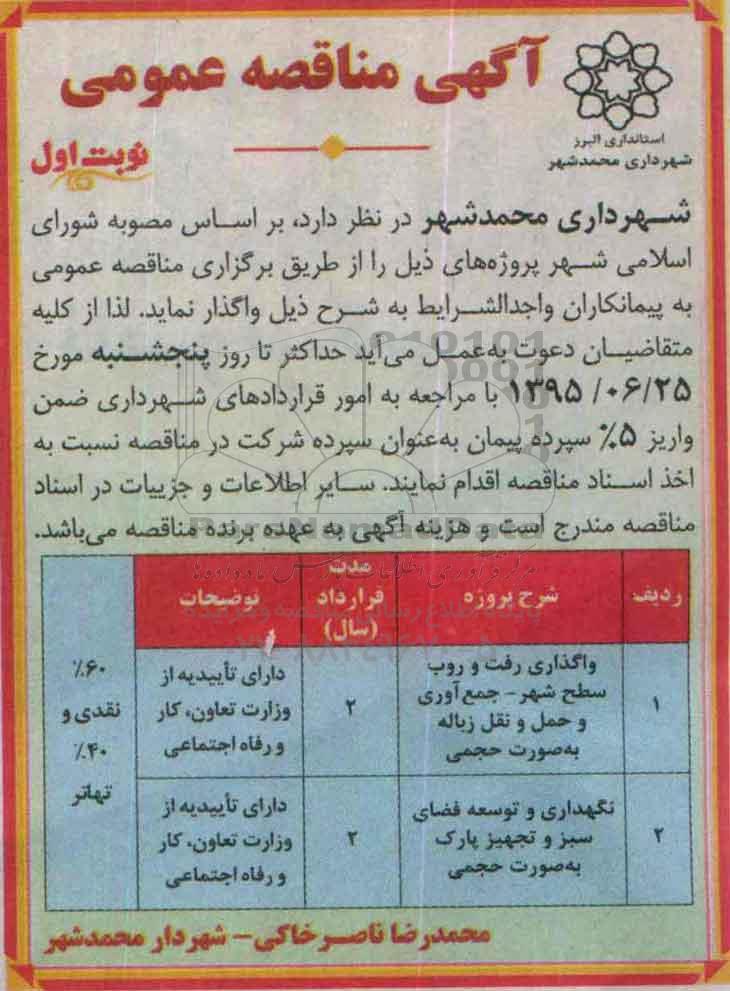 آگهی مناقصه عمومی
استانداری البرز
شهرداری محمدشهر
نوبت اول
شهرداری محمدشهر در نظر دارد، بر اساس مصوبه شورای
اسلامی شهر پروژه‌های ذیل را از طریق برگزاری مناقصه عمومی
به پیمانکاران واجدالشرایط به شرح ذیل واگذار نماید. لذا از کلیه
متقاضیان دعوت به‌عمل می‌آید حداکثر تا روز پنجشنبه مورخ
۱۳۹۵/۰۶/۲۵ با مراجعه به امور قراردادهای شهرداری ضمن
واریز ۵٪ سپرده پیمان به‌عنوان سپرده شرکت در مناقصه نسبت به
اخذ اسناد مناقصه اقدام نمایند. سایر اطلاعات و جزییات در اسناد
مناقصه مندرج است و هزینه آگهی به عهده برنده مناقصه می‌باشد.
ردیف
شرح پروژه
مدت
قرارداد
(سال)
توضیحات
۱
واگذاری رفت و روب
سطح شهر - جمع‌آوری
و حمل و نقل زباله
به‌صورت حجمی
۲
دارای تأییدیه از
وزارت تعاون، کار
و رفاه اجتماعی
۶۰٪
نقدی و
۴۰٪
تهاتر
۲
نگهداری و توسعه فضای
سبز و تجهیز پارک
به‌صورت حجمی
۲
دارای تأییدیه از
وزارت تعاون، کار
و رفاه اجتماعی
محمدرضا ناصرخاکی - شهردار محمدشهر